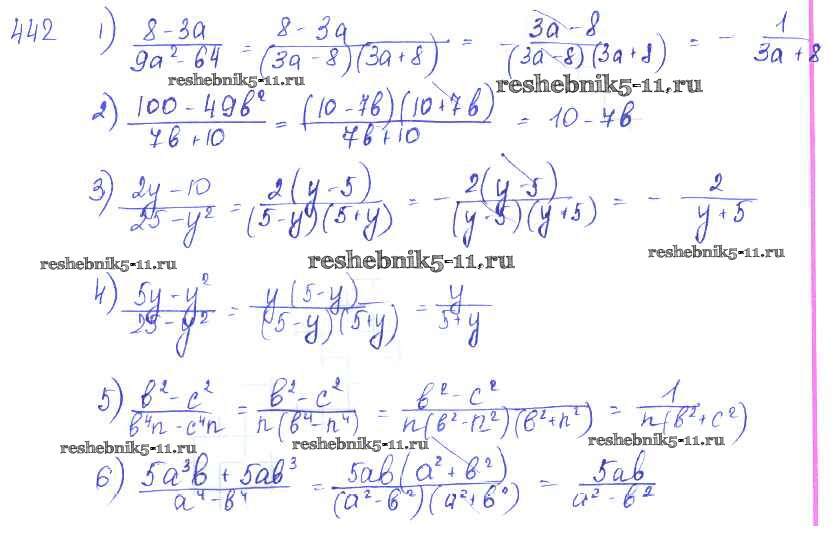 442 1) (8 - 3a)/(9a² - 64) = (8 - 3a)/((3a - 8)(3a + 8)) = (3a - 8)/((3a - 8)(3a + 8)) = - 1/(3a + 8)
reshebnik5-11.ru reshebnik5-11.ru
2) (100 - 49b²)/(7b + 10) = ((10 - 7b)(10 + 7b))/(7b + 10) = 10 - 7b
3) (2y - 10)/(25 - y²) = (2(y - 5))/((5 - y)(5 + y)) = - (2(y - 5))/((y - 5)(y + 5)) = - 2/(y + 5)
reshebnik5-11.ru reshebnik5-11.ru reshebnik5-11.ru
4) (5y - y²)/(25 - y²) = (y(5 - y))/((5 - y)(5 + y)) = y/(5 + y)
5) (b² - c²)/(b⁴n - c⁴n) = (b² - c²)/(n(b⁴ - n⁴)) = (b² - c²)/(n(b² - n²)(b² + n²)) = 1/(n(b² + c²))
reshebnik5-11.ru reshebnik5-11.ru reshebnik5-11.ru
6) (5a³b + 5ab³)/(a⁴ - b⁴) = (5ab(a² + b²))/((a² - b²)(a² + b²)) = 5ab/(a² - b²)